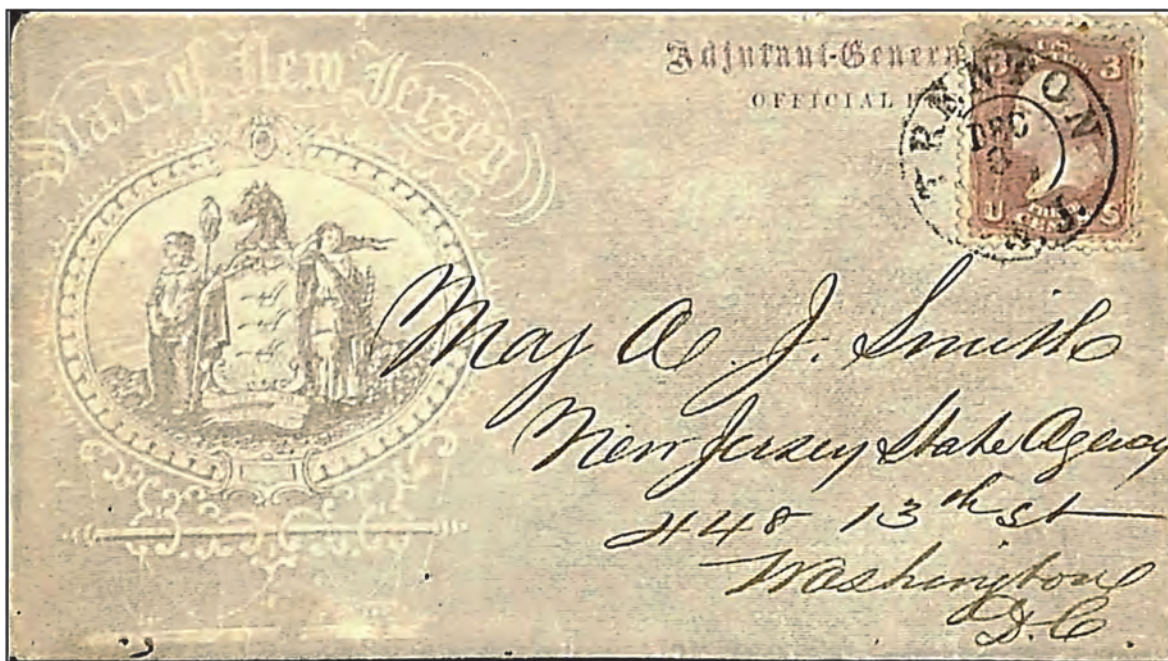 State of New Jersey
Adjutant-Genera
OFFICIAL
TRENTON
DEC
N.J.
3 3
U S
Maj A. J. Smith
New Jersey State Agency
448 13th St
Washington
D.C.